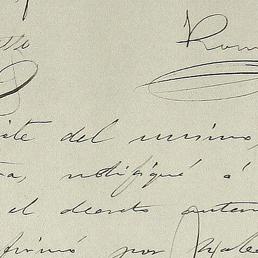 Rom
ite del mismo,
ra, notifiqué á
el decreto anter
firmó por